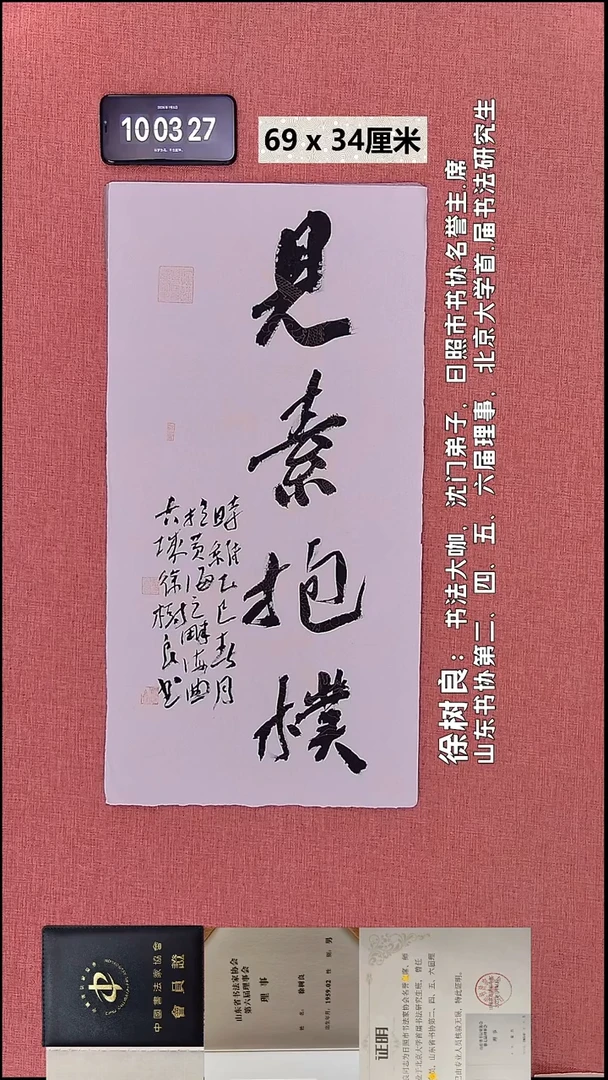 10 03 27
69 x 34厘米
見素抱樸
時維乙巳春月
於黃海之畔海曲
古城徐樹良書
徐树良：书法大咖，沈门弟子，日照市书协名誉主.席
山东书协第二、四、五、六届理事，北京大学首.届书法研究生
中國書法家協會
會員證
山东省书法家协会
第六届理事会
理 事
姓 名： 徐树良
出生年月： 1959.02 性 别： 男
证明